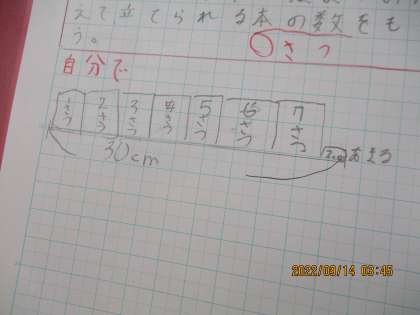 えて立てられる本の数をも
う。
○さつ
自分で
1さつ 2さつ 3さつ 4さつ 5さつ 6さつ 7さつ
あまり
30cm
2022/09/14 03:45